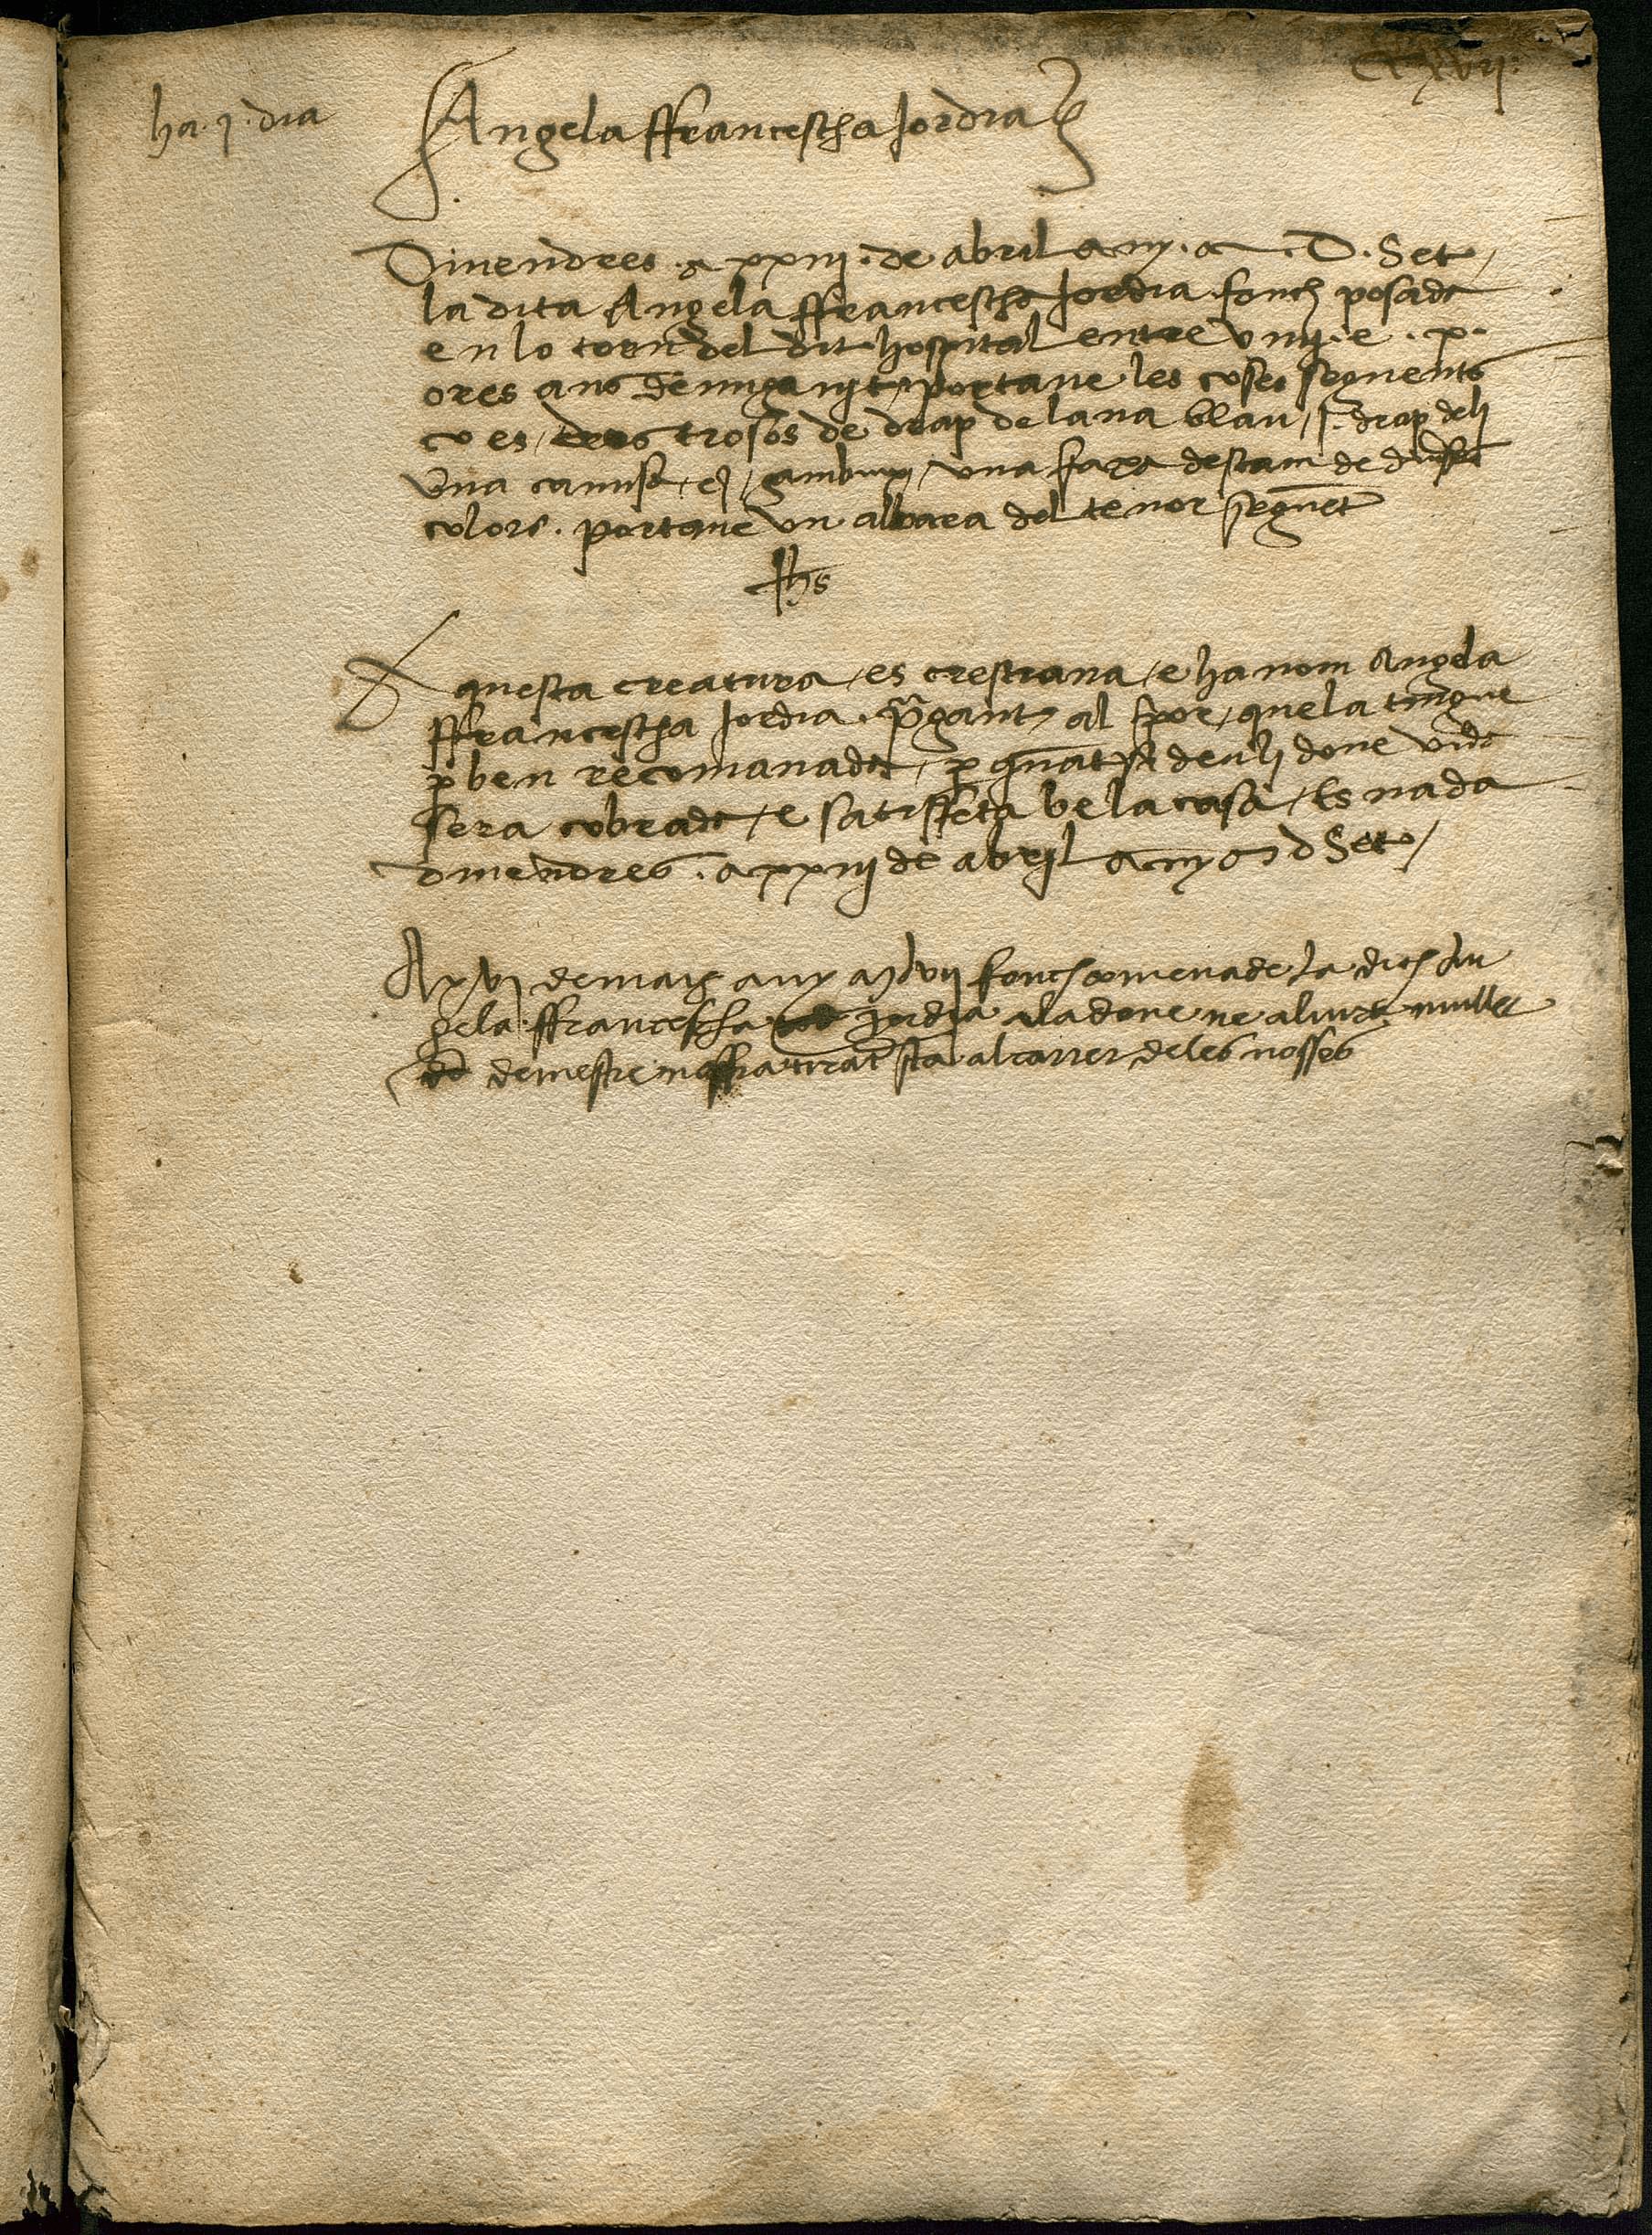 ha · j · dia
Angela ffrancescha Jordia
Divendres · a xxiij · de abril any · M · D · Set /
la dita Angela ffrancescha Jordia fonch posada
en lo torn del dit hospital entre viiij · e · x ·
ores ans de miga nit / portave les coses seguents
ço es / tres trosos de drap de lana blau / j drap de li
Una camisa / e j / gambuix / una faxa destam de diverses
colors · portave un albara del tenor seguent
Jhs
Aquesta creatura / es crestiana / e ha nom Angela
ffrancescha Jordia · pregant al spor / que la tingue
per ben recomanada / per quant si deu li done vida
sera cobrada / e satisffeta be la casa / Es nada
divendres · a xxiij de abril any M D Set /
A xvj de maig any M d vij fonch comenada la dich An
gela ffrancescha Jordia a la done
de mestre sta al carrer de les nosses